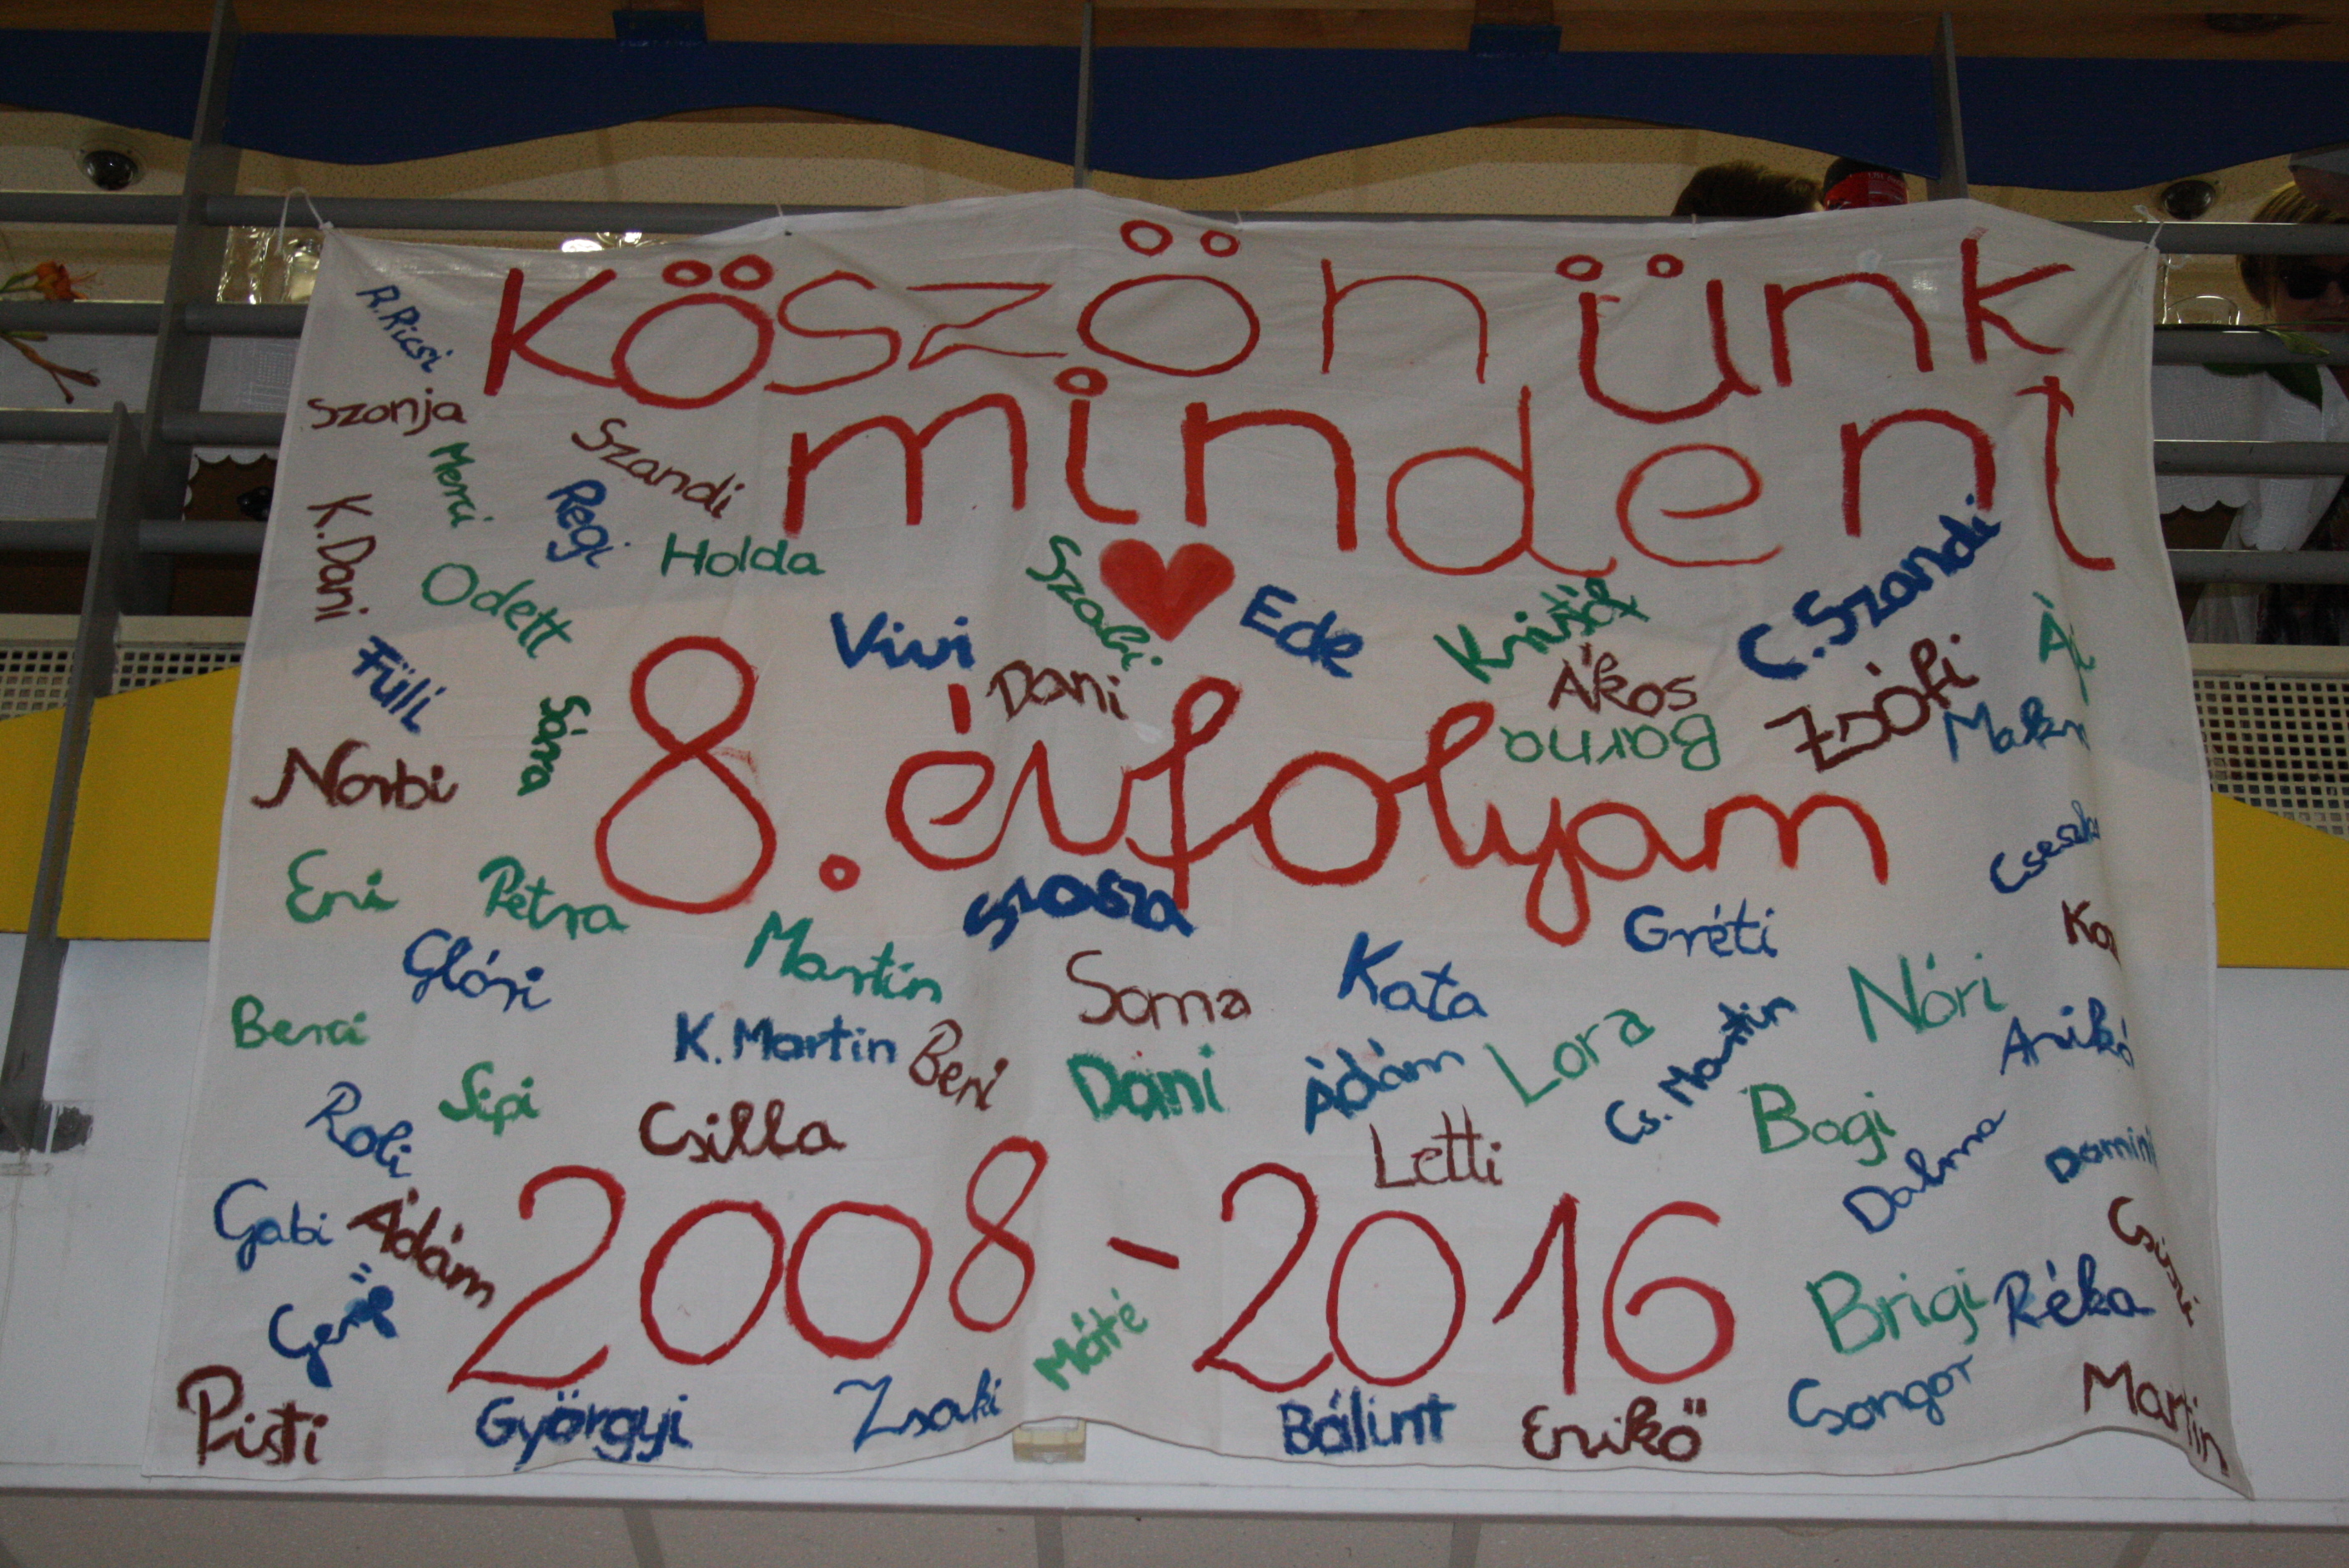 Köszönünk
mindent
R.Ricsi
Szonja
Szandi
Merci
Regi
K.Dani
Holda
Odett
Szabi
Ede
Kristóf
C.Szandi
Vivi
Füli
Sára
Dani
Ákos
Zsófi
Barna
Norbi
8. évfolyam
Eni
Petra
Szasza
Gréti
Glóri
Martin
Soma
Kata
Nóri
Berci
K.Martin
Beni
Dani
Ádám
Lora
Cs.Martin
Anikó
Roli
Sipi
Csilla
Letti
Bogi
Dalma
Domini
Gabi
Ádám
2008-2016
Máté
Brigi
Réka
Pisti
Györgyi
Zsaki
Bálint
Enikő
Csongor
Martin